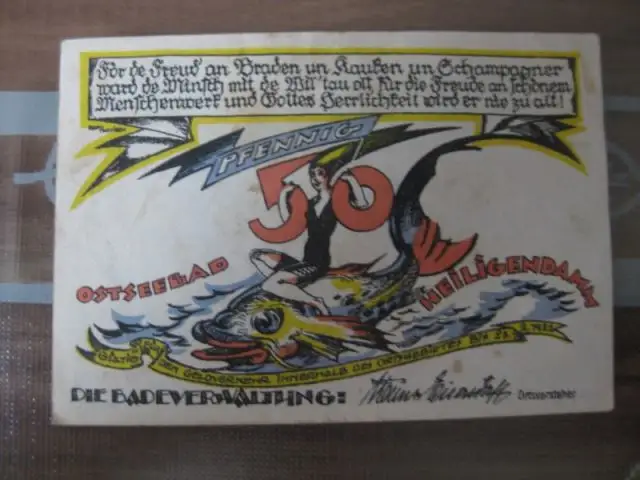 För de Freud' an Braden un Kauken un Schampagner
ward de Minsch mit de Wil' tau olt, für die Freude an schönem
Menschenwerk und Gottes Herrlichkeit wird er nie zu alt!
PFENNIG
50
OSTSEEBAD
HEILIGENDAMM
DEN GELDVERKEHR INNERHALB DES ORTSGEBIETES BIS
DIE BADEVERWALTUNG:
Ortsvorsteher